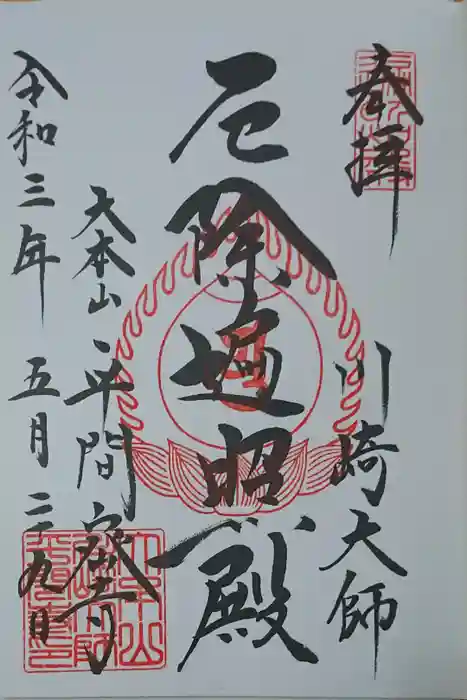 奉拝
川崎大師
厄除遍照殿
大本山平間寺
令和三年五月二十九日